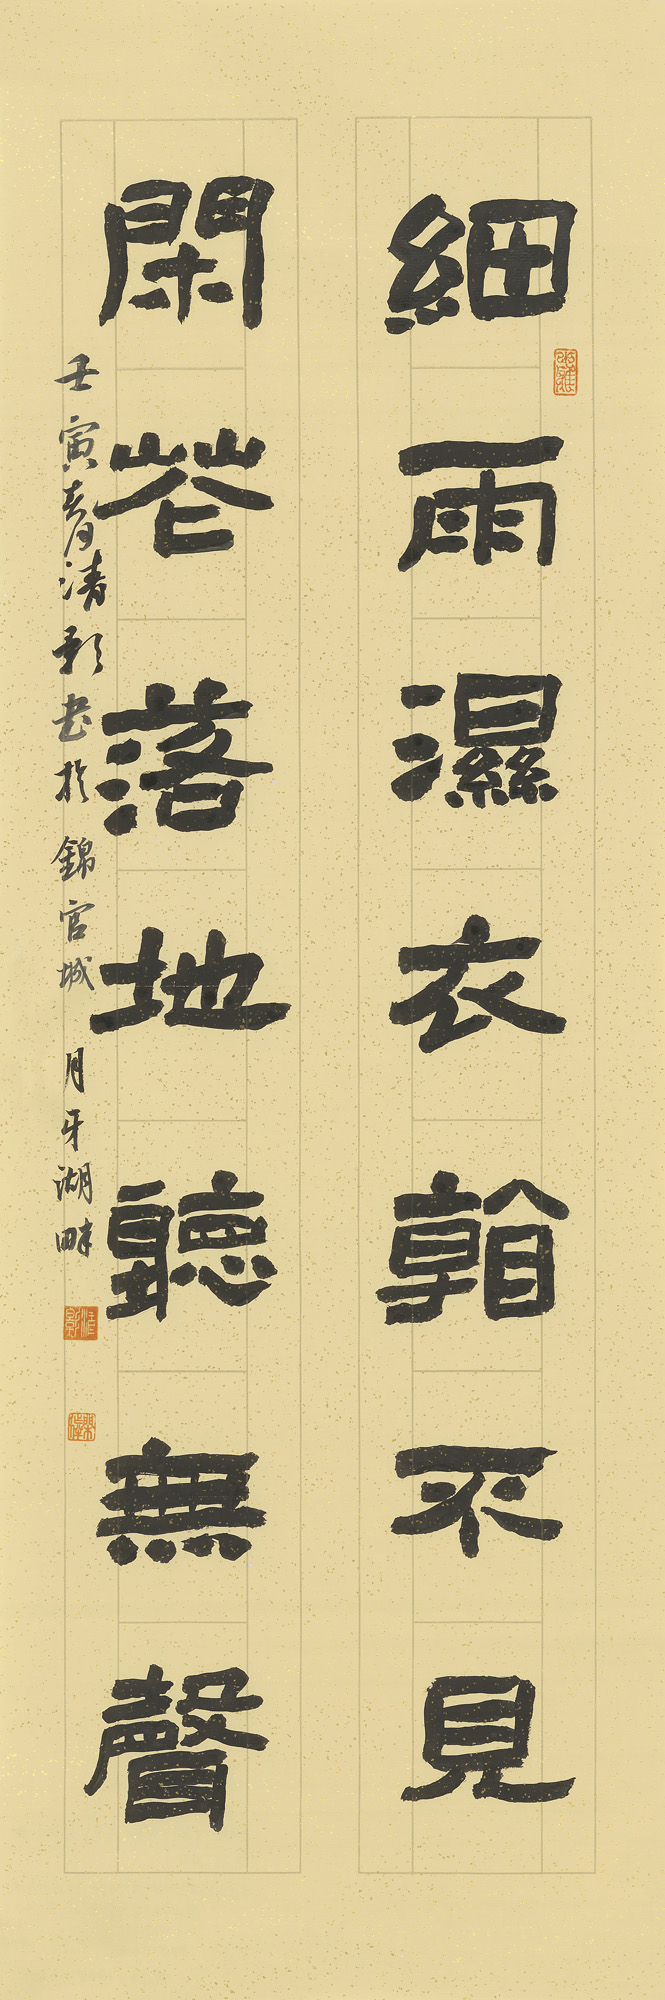 細雨濕衣看不見
閑花落地聽無聲
壬寅春清影书於錦官城 月牙湖畔